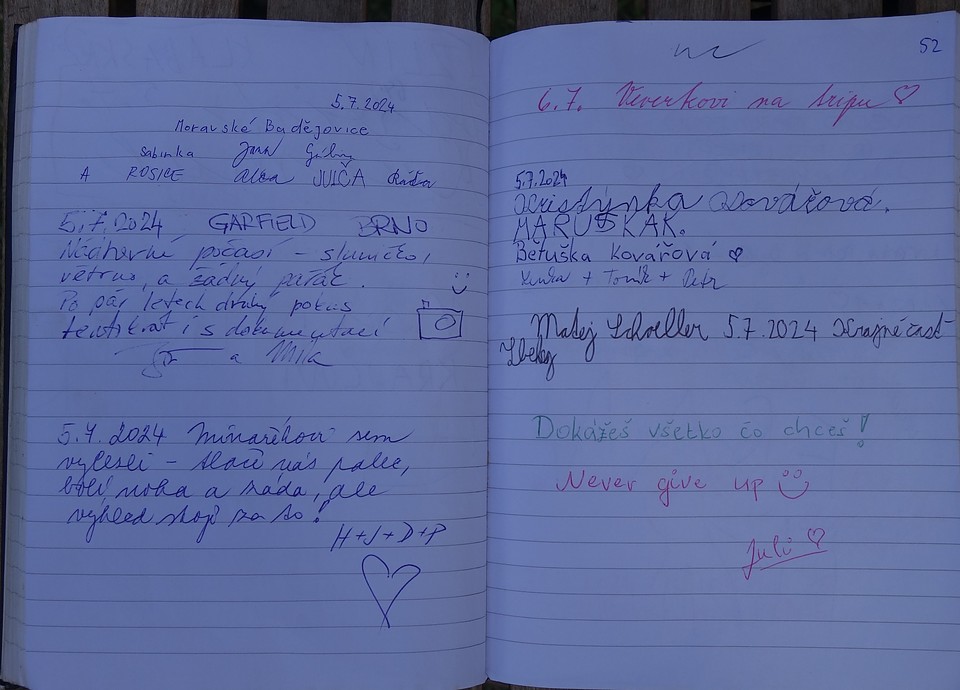 5.7.2024
Moravské Budějovice
Sabinka Jana
A ROSICE JULČA
5.7.2024 GARFIELD BRNO
Nádherné počasí – sluníčko,
větrno, a žádný pařák.
Po pár letech druhý pokus
tentokrát i s dokumentací
a Mika
5.7.2024 Minaříkovi sem
vylezli – tlačí nás palec,
bolí noha a záda, ale
výhled stojí za to!
H+J+D+P
52
6.7. Veverkovi na tripu ♡
5.7.2024
Kristýnka Kovářová.
MARUŠKA K.
Betuška Kovářová ♡
Lenka + Tomík + Petr
Matej Schoeller 5.7.2024 Krajné časť
Dokážeš všetko čo chceš!
Never give up
Juli ♡